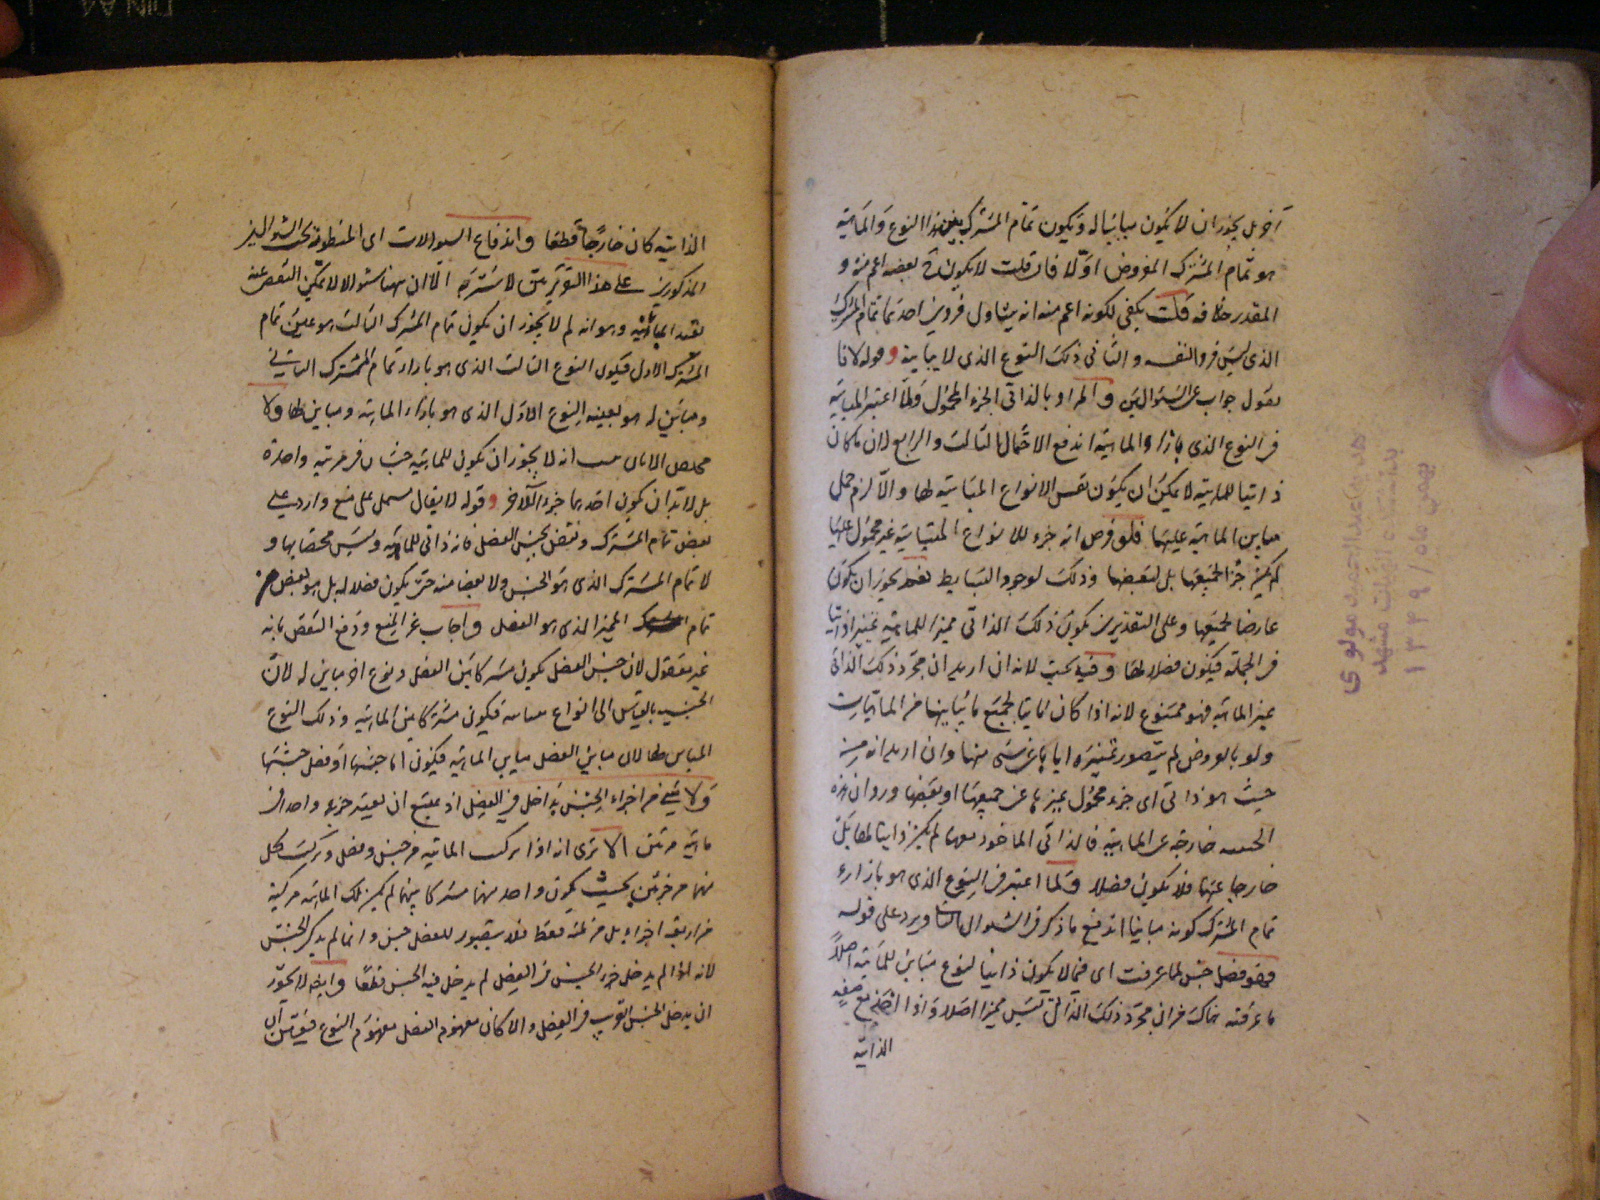 آخر بل يجوز ان لا يكون مباينا له ويكون تمام المشترك بين هذا النوع والماهية
هو تمام المشترك المفروض اولا فان قلت لا يكون بعضه اعم منه و
المقدر خلافه قلت يكفى لكونه اعم منه انه يتناول فردين احدهما تمام المشترك
الذى ليس فردا لنفسه والثانى ذلك النوع الذى لا يباينه وقوله لانا
نقول جواب عن السؤالين والمراد بالذاتى الجزء المحمول ولما اعتبر المباينة
فى النوع الذى بازاء الماهية اندفع الاحتمال الثالث والرابع لان ما كان
ذاتيا للماهية لا يمكن ان يكون نفس الانواع المباينة لها والا لزم حمل
مباين الماهية عليها فلو فرض انه جزء للانواع المتباينة غير محمول عليها
لم يكن جزءا لجميعها بل لبعضها وذلك لوجود البسايط فقد يجوز ان يكون
عارضا لجميعها وعلى التقديرين يكون ذلك الذاتى مميزا للماهية تمييزا ذاتيا
فى الجملة فيكون فصلا لها وفيه بحث لانه ان اريد ان مجرد ذلك الذاتى
يميز الماهية فهو ممنوع لانه اذا كان ثابتا لجميع ما يباينها من الماهيات
ولو بالعروض لم يتصور تمييزه اياها عن شئ منها وان اريد انه من
حيث هو ذاتى اى جزء محمول يميزها عن جميعها او بعضها ورد ان هذه
الحيثية خارجة عن الماهية فالذاتى الماخوذ معها لم يكن ذاتيا لها بل
خارجا عنها فلا يكون فصلا ولما اعتبر فى النوع الذى هو بازاء
تمام المشترك كونه مباينا اندفع ما ذكر فى السؤال الثانى ويرد على قوله
فهو فصل جنس لما عرفت اى فيما لا يكون ذاتيا لنوع مباين للماهية اصلا
ما عرفته هناك من ان مجرد ذلك الذاتى ليس مميزا اصلا واذا اخذ مع صفة
الذاتية
عبدالحمید مولوی
مشهد
بهمن ماه / ۱۳۴۹
الذاتية كان خارجا قطعا واندفاع السؤالات اى المنظور بحث السؤالين
المذكورين على هذا التقرير مما لا سترة به الا ان ههنا سؤالا لا يمكن التفصى عنه
بقيد المباينة وهو انه لم لا يجوز ان يكون تمام المشترك الثالث هو عين تمام
المشترك الاول فيكون النوع الثالث الذى هو بازاء تمام المشترك الثانى
ومباين له هو بعينه النوع الاول الذى هو بازاء الماهية ومباين لها ولا
مخلص الا بان يبين انه لا يجوز ان يكون للماهية جنسان فى مرتبة واحدة
بل لا بد ان يكون احدهما جزءا للآخر وقوله لا يقال مشتمل على منع وارد على
بعض تمام المشترك ونقض بجنس الفصل فانه ذاتى للماهية وليس مختصا بها و
لا تمام المشترك الذى هو الجنس ولا بعضا منه حتى يكون فصلا له بل هو بعض من
تمام المميز الذى هو الفصل واجاب عن المنع ودفع النقض بانه
غير معقول لان جنس الفصل يكون مشتركا بين الفصل ونوع آخر مباين له لان
الجنس بالقياس الى انواع متباينة فيكون مشتركا بين الماهية وذلك النوع
المباين لها لان مباين الفصل مباين الماهية فيكون اما جنسها او فصل جنسها
ولا شئ من اجزاء الجنس بداخل فى الفصل اذ يمتنع ان يعتبر جزء واحد فى
ماهية مرتين الا ترى انه اذا تركبت الماهية من جنس وفصل وتركب كل
منهما من جزئين بحيث يكون واحد منهما مشتركا بينهما لم يكن تلك الماهية مركبة
من اربعة اجزاء بل من ثلثة فقط فلا يتصور للفصل جنس وانما لم يذكر الجنس
لانه اذا لم يدخل جزء الجنس فى الفصل لم يدخل فيه الجنس قطعا وايضا لا يجوز
ان يدخل الجنس القريب فى الفصل والا كان مفهوم الفصل مفهوم النوع فيؤتى بان